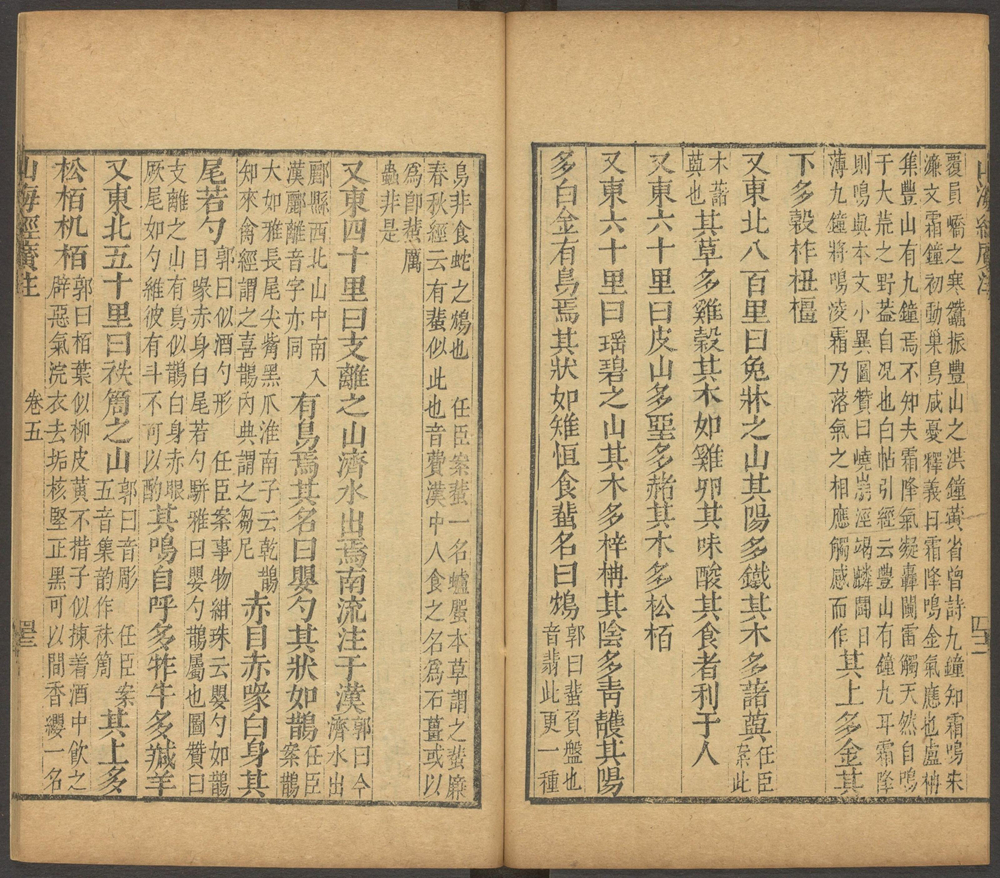 覆員嶠之寒蠶振豐山之洪鐘黃省曾詩九鐘知霜鳴朱
濂文霜鐘初動巢鳥咸憂釋義曰霜降鳴金氣應也盧柟
集豐山有九鐘焉不知夫霜降氣凝轟闐雷觸天然自鳴
于大荒之野葢自况也白帖引經云豐山有鐘九耳霜降
則鳴與本文小異圖贊曰嶢崩涇竭麟鬭日
薄九鐘將鳴淩霜乃落氣之相應觸感而作
其上多金其
下多榖柞杻橿
又東北八百里曰兔牀之山其陽多鐵其木多藷藇
任臣
案此
木藷
藇也
其草多雞榖其本如雞卵其味酸甚食者利于人
又東六十里曰皮山多堊多赭其木多松栢
又東六十里曰瑶碧之山其木多梓柟其陰多靑雘其陽
多白金有鳥焉其狀如雉恒食蜚名曰鴆
郭曰蜚負盤也
音翡此更一種
四十二
鳥非食蛇之鴆也 任臣案蜚一名蠦蜰本草謂之蜚廉
春秋經云有蜚似此也音費漢中人食之名爲石薑或以
爲卽蜚厲
蟲非是
又東四十里曰支離之山濟水出焉南流注于漢
郭曰今
濟水出
酈縣西北山中南入
漢酈離音字亦同
有鳥焉其名曰嬰勺其狀如鵲
任臣
案鵲
大如雅長尾尖觜黑爪淮南子云乾鵲
知來禽經謂之喜鵲內典謂之芻尼
赤目赤喙白身其
尾若勺
郭曰似酒勺形 任臣案事物紺珠云嬰勺如鵲
目喙赤身白尾若勺駢雅曰嬰勺鵲屬也圖贊曰
支離之山有鳥似鵲白身赤眼
厥尾如勺維彼有斗不可以酌
其鳴自呼多㸲牛多羬羊
又東北五十里曰袟䈎之山
郭曰音彫 任臣案
五音集韵作祩䈎
其上多
松栢机栢
郭曰栢葉似柳皮黃不措子似揀着酒中飲之
辟惡氣浣衣去垢核堅正黑可以間香纓一名
山海經廣注 卷五